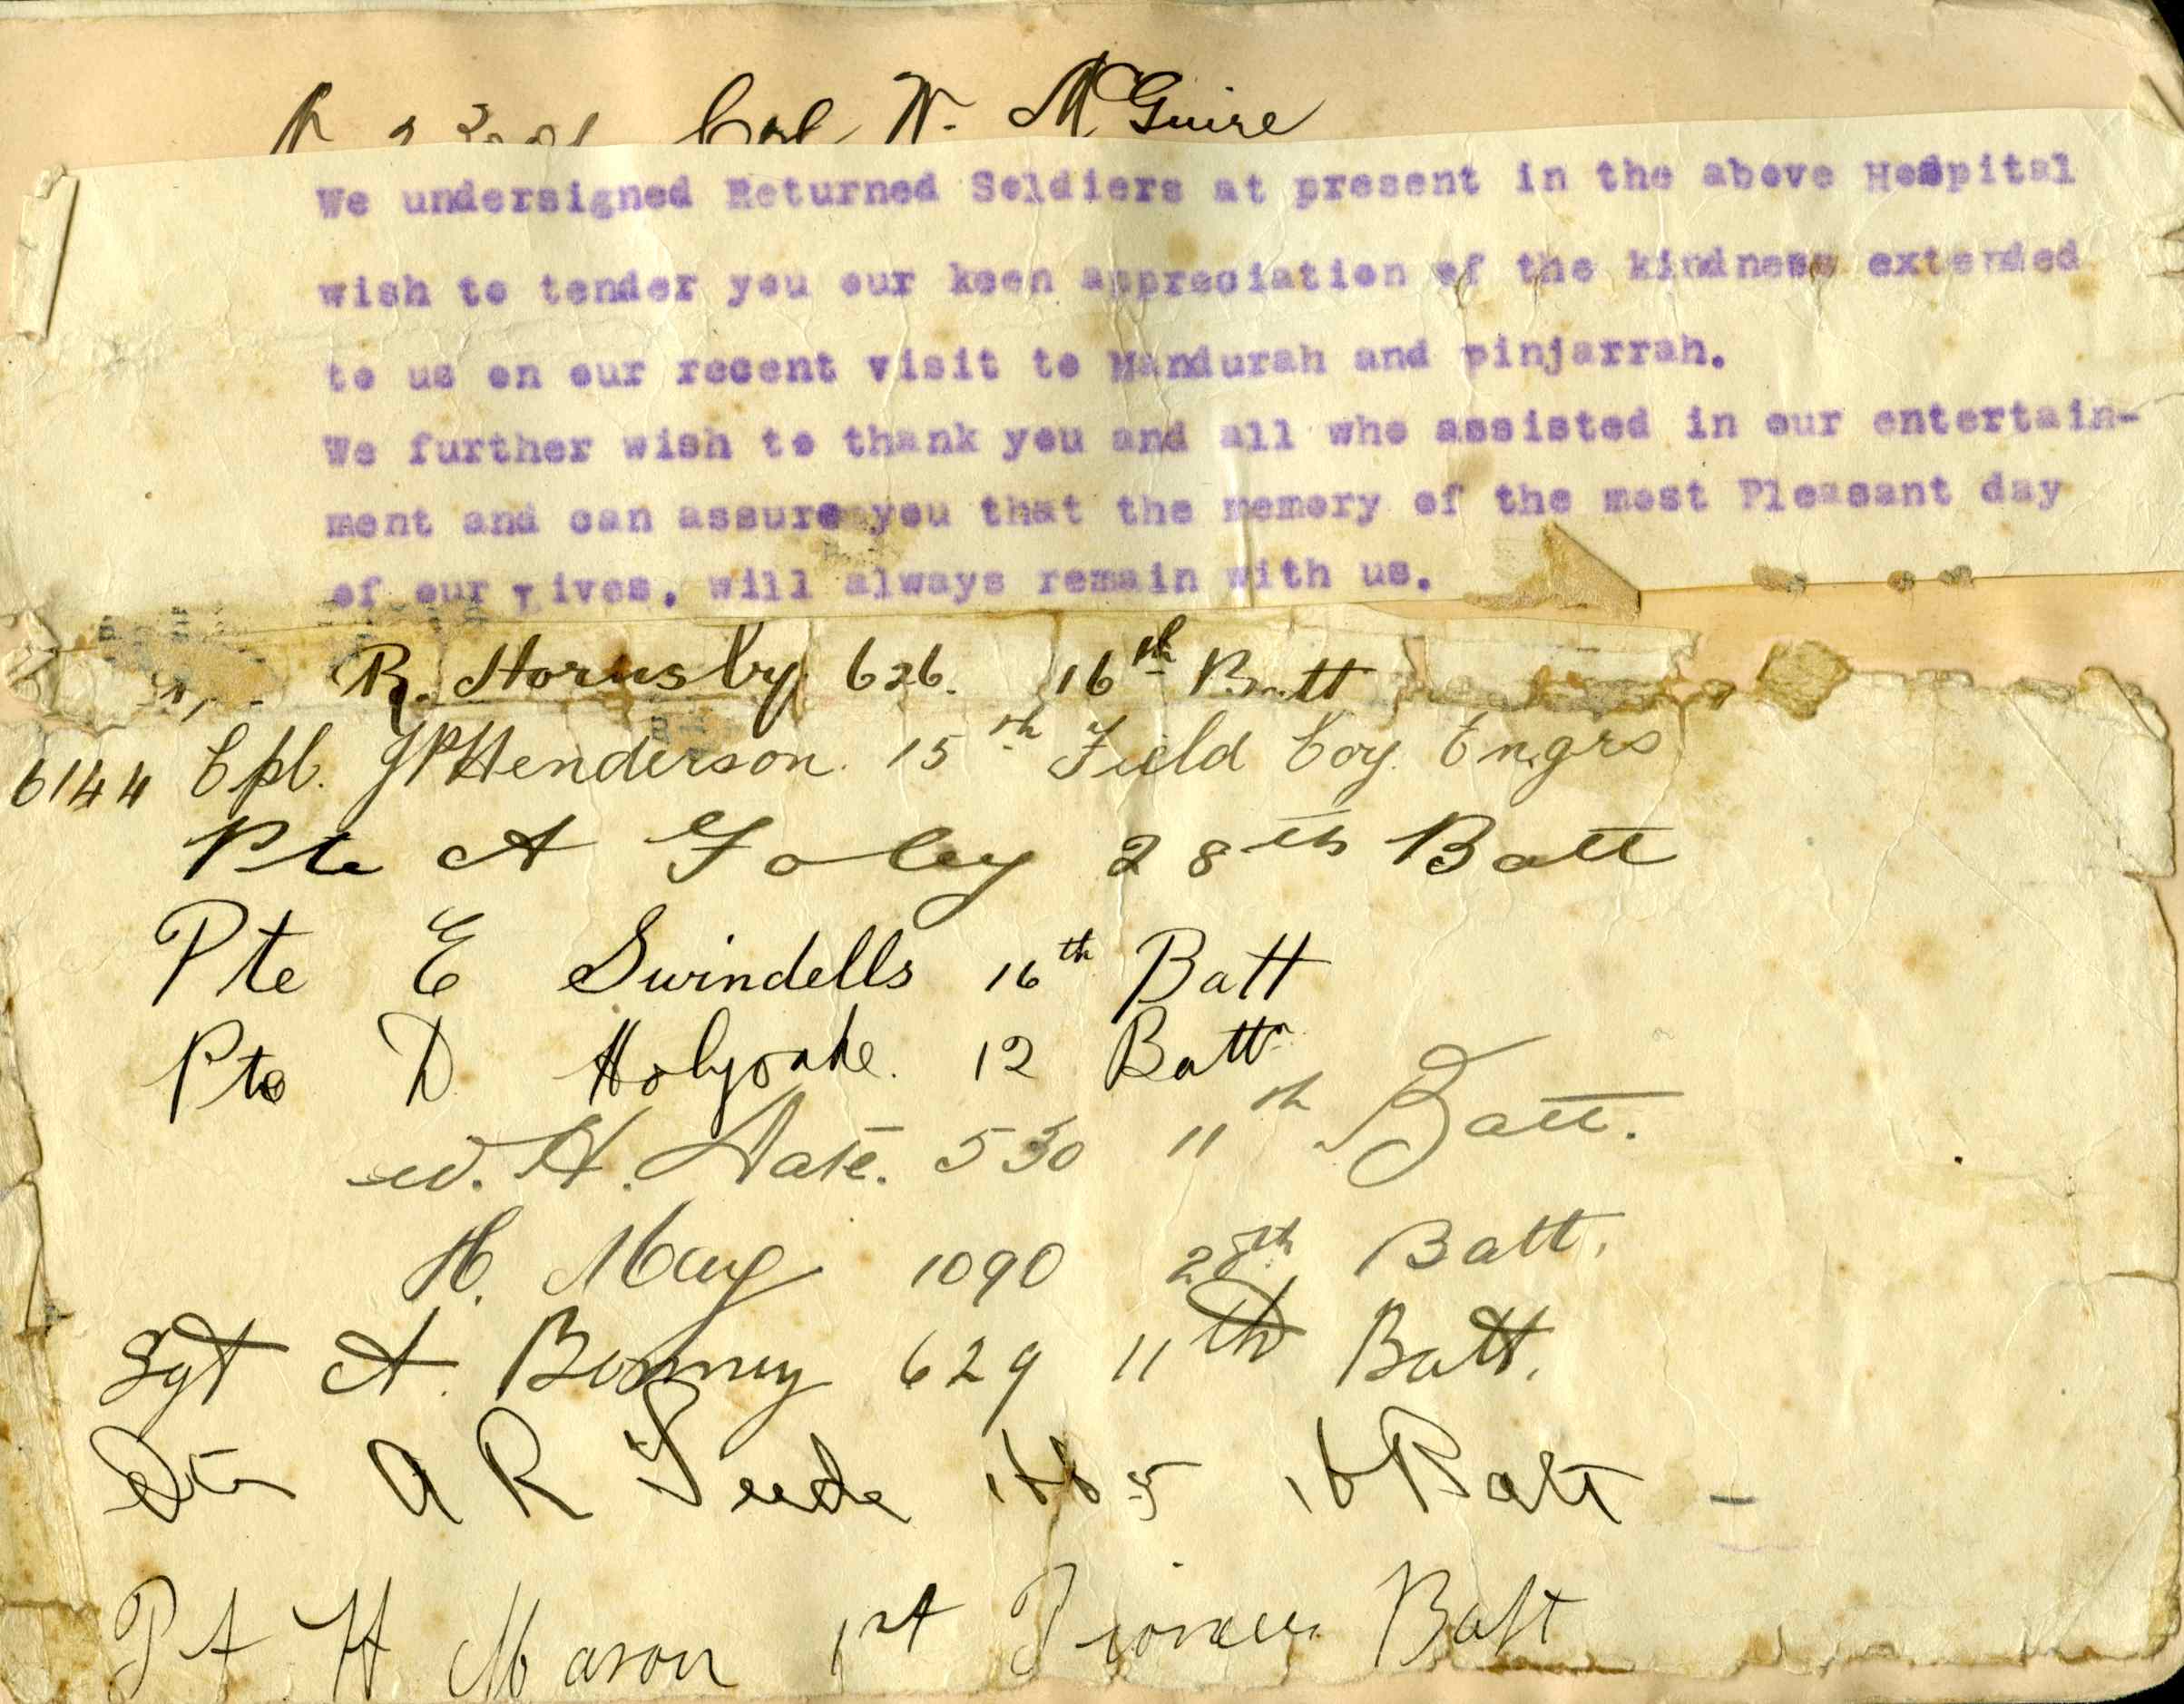 W. McGuire
We undersigned Returned Soldiers at present in the above Hospital
wish to tender you our keen appreciation of the kindness extended
to us on our recent visit to Mandurah and pinjarrah.
We further wish to thank you and all who assisted in our entertain-
ment and can assure you that the memory of the most Pleasant day
of our lives, will always remain with us.
R. Hornsby 626. 16th Batt
6144 Cpl. JPHenderson. 15th Field Coy. Engrs
Pte A Foley 28th Batt
Pte E Swindells 16th Batt
Pte D Holyoake. 12 Battn
W. H. 530 11th Batt.
H. May 1090 28th Batt.
Sgt A. Bonney 629 11th Batt.
A R 16 Batt
Pt H Mason 1st Pioneer Batt